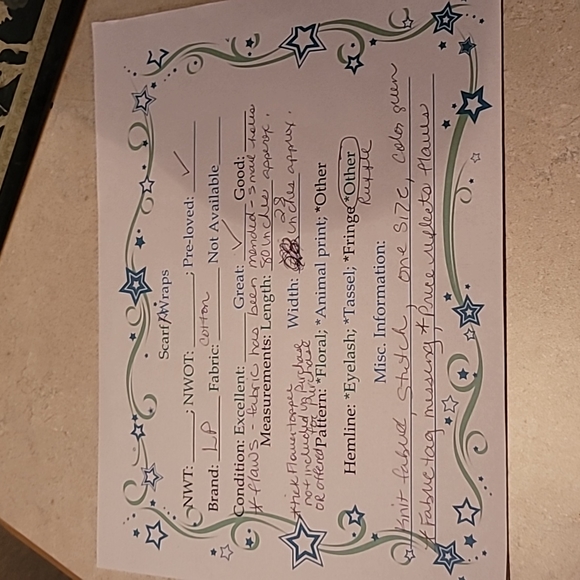 Scarf/Wraps
NWT: ____; NWOT: ____; Pre-loved: ✓
Brand: LP Fabric: cotton Not Available ____
Condition: Excellent: ____ Great: ✓ Good:
* flaws - fabric has been mended - small holes
Measurements: Length: 80 inches approx.
* thick Flower topper
Width: 28 inches approx.
not included in purchase
or offered for purchase
Pattern: *Floral; *Animal print; *Other
Hemline: *Eyelash; *Tassel; *Fringe *Other
Ruffle
Misc. Information:
* Knit fabric, Stretch, one size, color green
* Fabric tag missing * Price reflects flaws